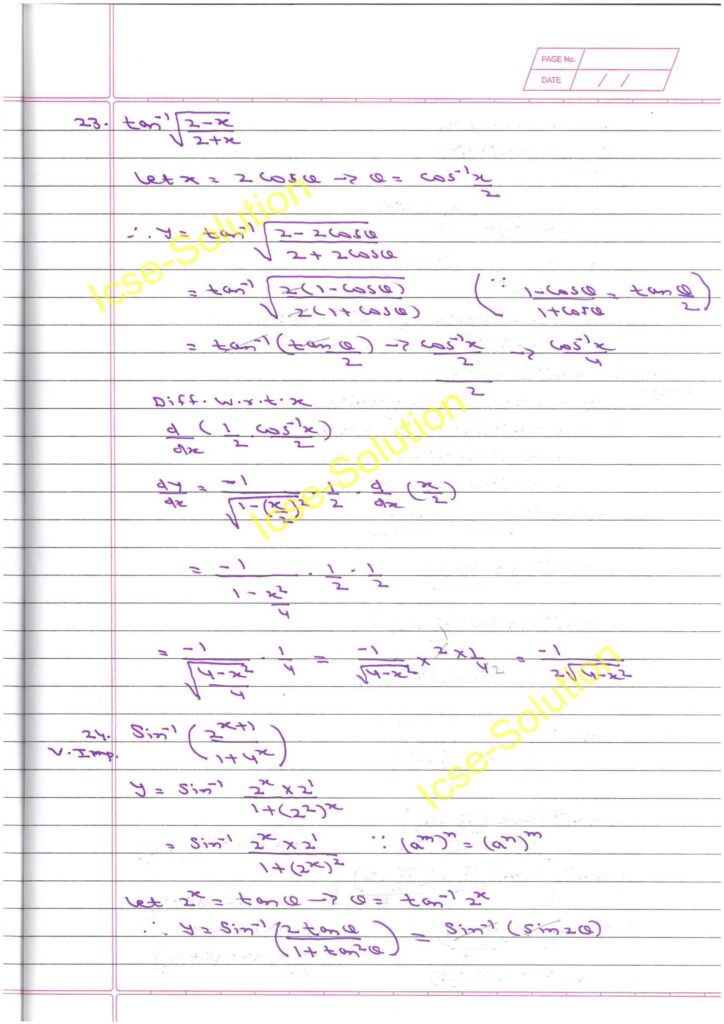 PAGE No.
DATE / /
23. tan⁻¹ √((2-x)/(2+x))
Let x = 2cosθ → θ = cos⁻¹ x/2
∴ y = tan⁻¹ √((2-2cosθ)/(2+2cosθ))
= tan⁻¹ √((2(1-cosθ))/(2(1+cosθ))) (∵ (1-cosθ)/(1+cosθ) = tan θ/2)
= tan⁻¹ (tan θ/2) → (cos⁻¹ x/2)/2 → cos⁻¹x/4
Diff. w.r.t. x
d/dx (1/2 · cos⁻¹x/2)
dy/dx = -1/√(1-(x/2)²) · 1/2 · d/dx (x/2)
= -1/(1-x²/4) · 1/2 · 1/2
= -1/√((4-x²)/4) · 1/4 = -1/√(4-x²) × 2 × 1/4 = -1/(2√(4-x²))
24. Sin⁻¹ (2^(x+1)/(1+4^x))
V. Imp.
y = Sin⁻¹ (2^x × 2^1)/(1+(2²)^x)
= Sin⁻¹ (2^x × 2^1)/(1+(2^x)²) ∵ (a^m)^n = (a^n)^m
Let 2^x = tanθ → θ = tan⁻¹ 2^x
∴ y = Sin⁻¹ (2tanθ/(1+tan²θ)) = Sin⁻¹ (Sin2θ)
Icse-Solution
Icse-Solution
Icse-Solution